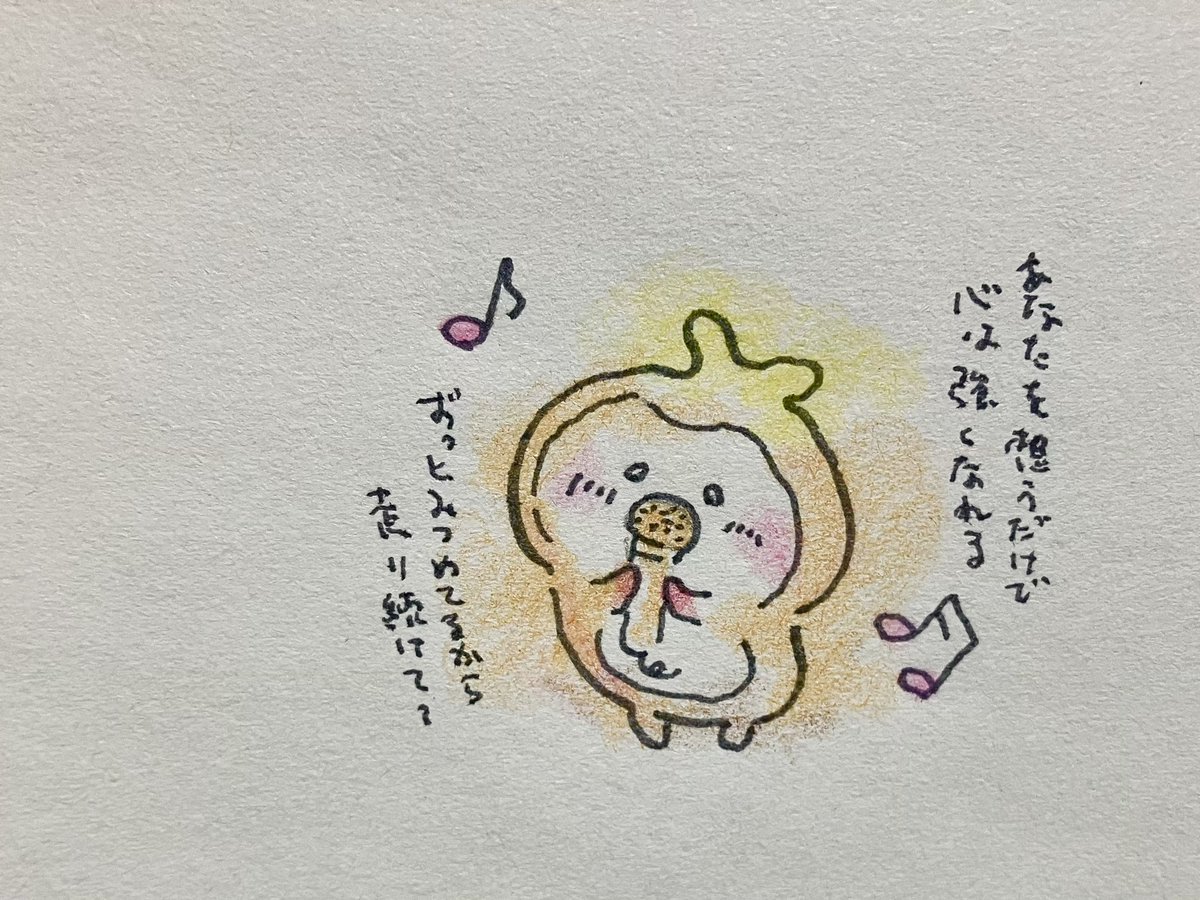 あなたを想うだけで
心は強くなれる
ずっとみつめてるから
走り続けてて